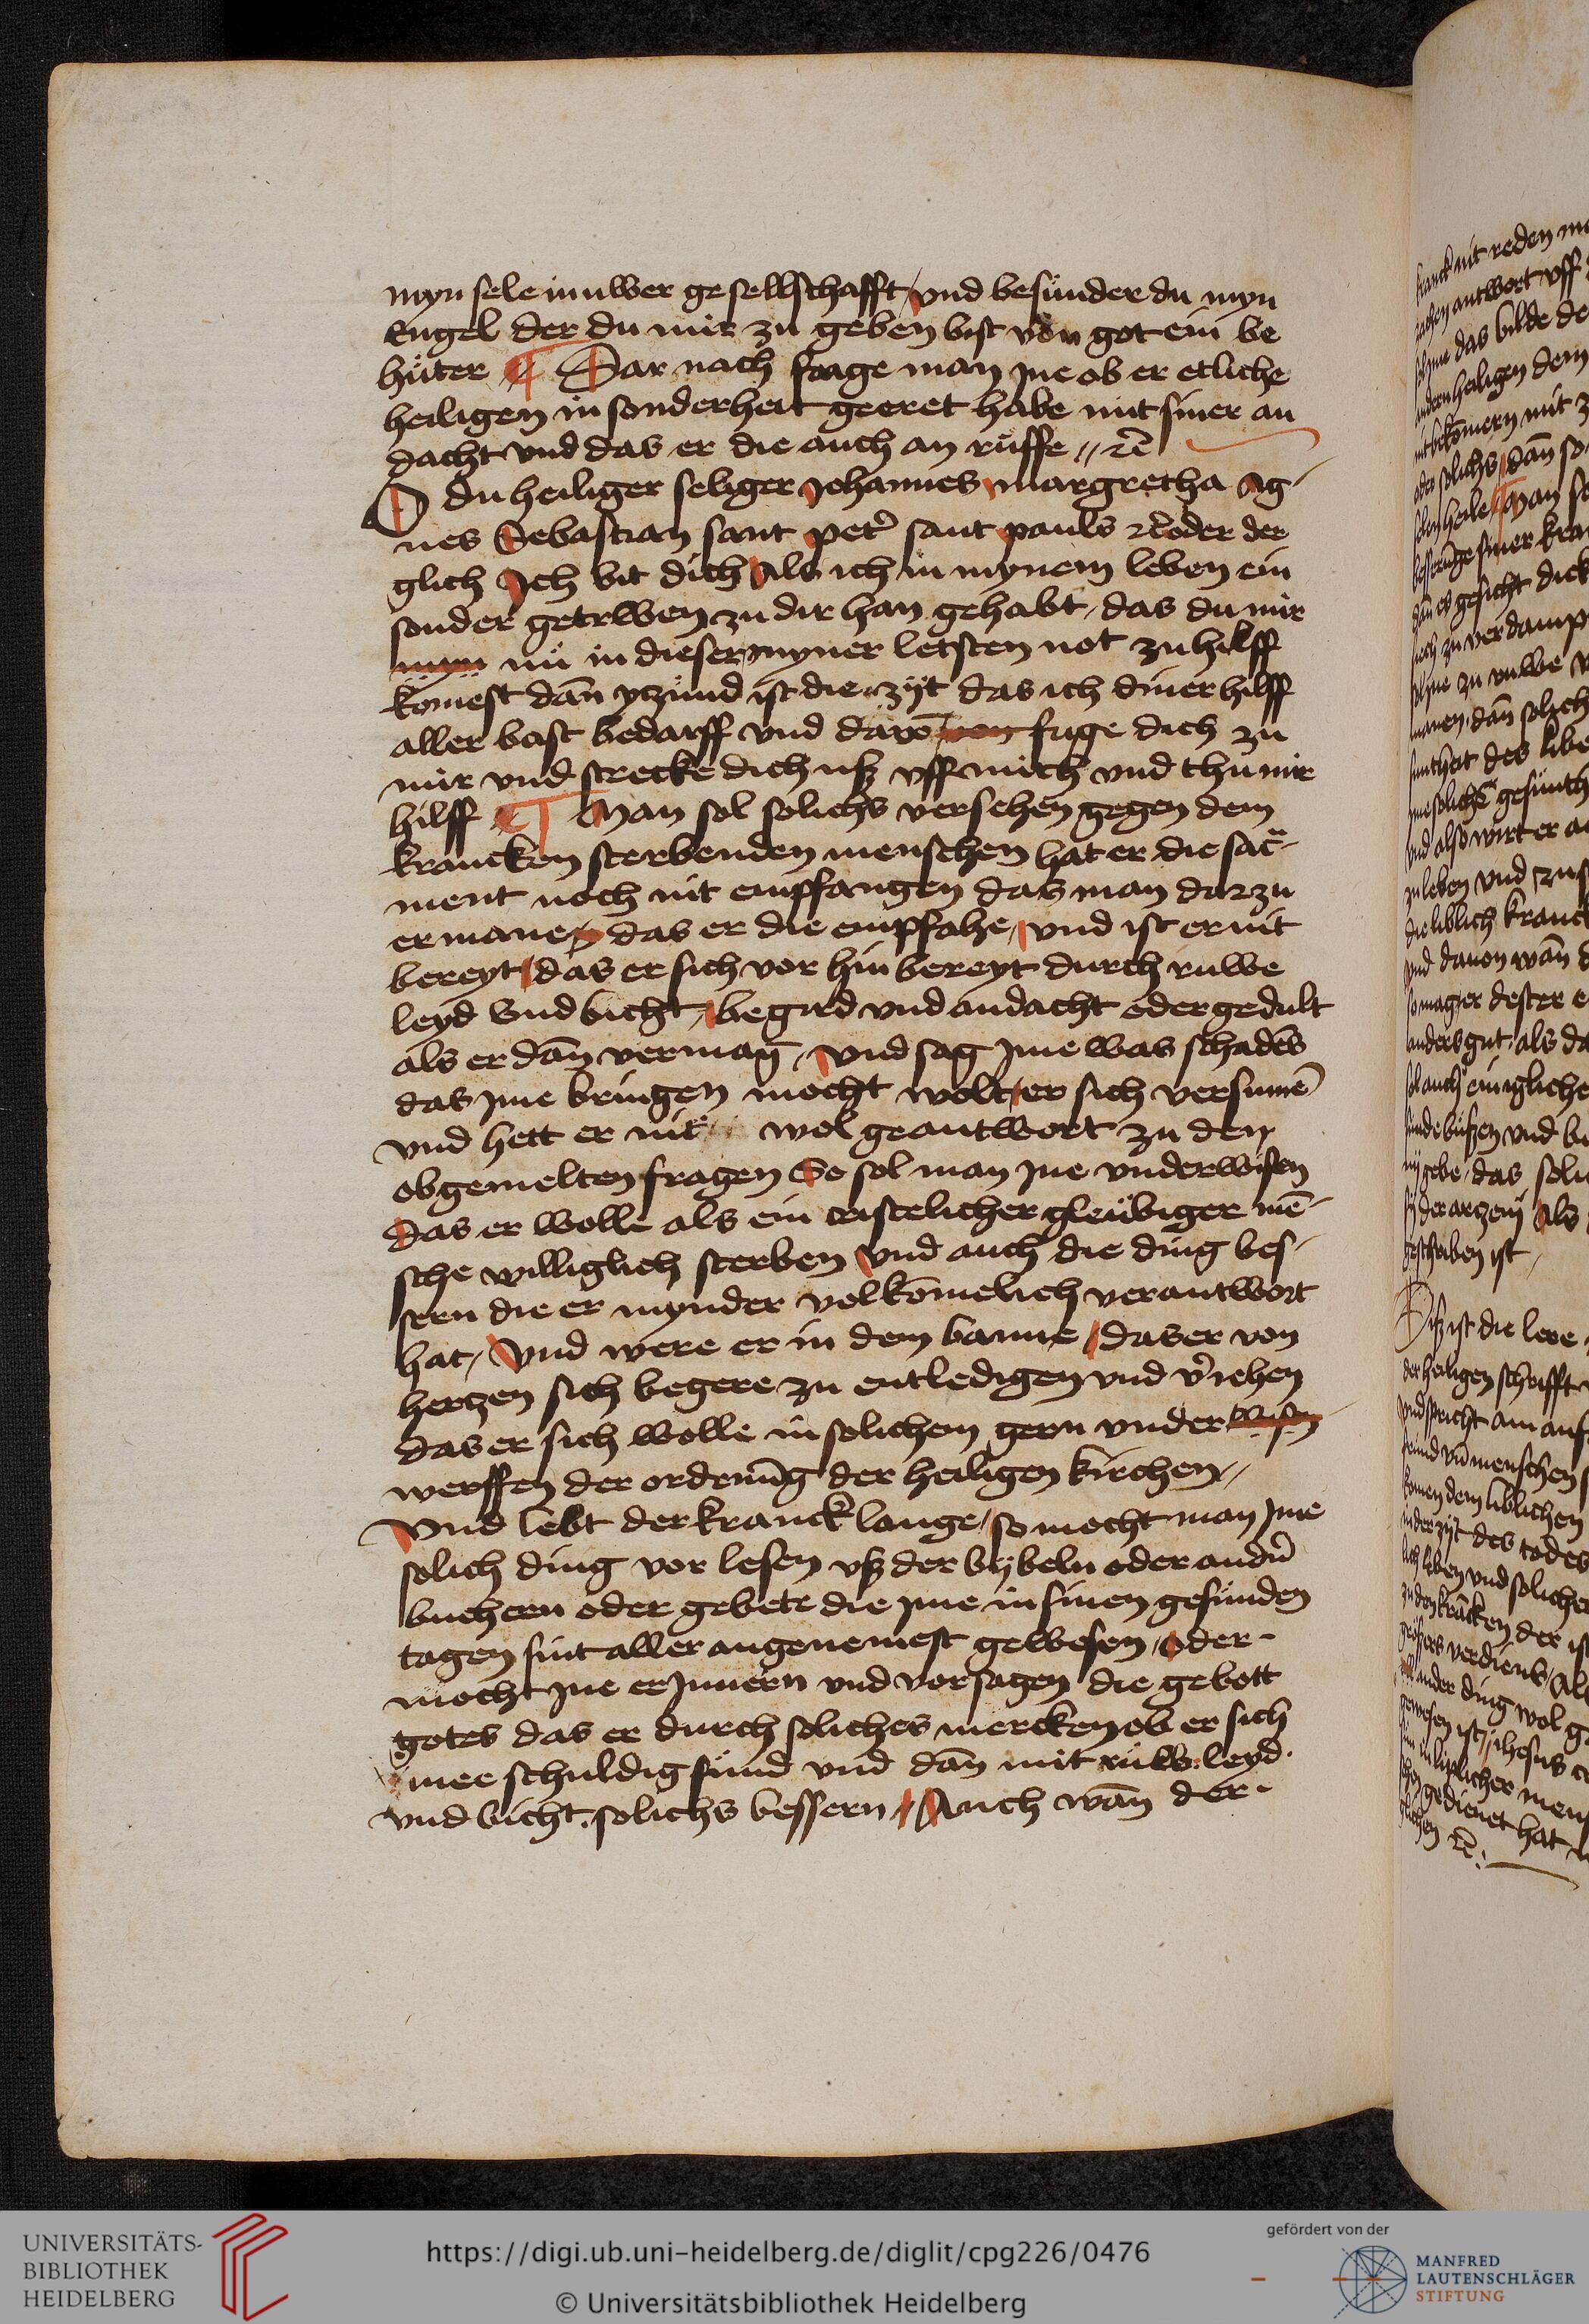 myn sele in uwer gesellschafft / vnd besunder du myn
Engel der du mir zu geben bist von got ein be
hüter ¶ Dar nach frage man jne ob er etliche
heiligen in sonderheit geeret habe mit siner an
dacht vnd das er die auch an rüffe // rc̄
O du heiliger seliger Johannes margretha Ag-
nes Sebastian sant pet̉ sant pauls rc̄ oder der
glich Ich bit dich Als ich in mynem leben ein
sonder getrwen zu dir han gehabt / das du mir
myn nü in dieser myner letsten not zu hilff
komest dān yczund ist die zyt das ich diner hilff
aller bast bedarff vnd davō von fuge dich zu
mir vnd strecke dich uß vff mich vnd thu mir
hilff ¶ Man sol solichs versehen gegen dem
krancken sterbenden menschen hat er die sac̄-
ment noch nit empfangen das man dar zu
ermane das er die empfahe / vnd ist er nit
bereyt / das er sich vor hin bereyt durch ruwe
leyd vnd bicht / begird vnd andacht oder gedult
als er dān vermag / vnd sag jme was schadēs
das jme bringen mocht wolt er sich versumē
vnd hett er nit wol geantwort zu den
obgemelten fragen So sol man jne vnderwisen
das er wolle als ein cristelicher gleübiger mē-
sche williglich sterben vnd auch die ding bes-
sern die er mynder volkōmelich verantwort
hat / Vnd were er in dem banne / das er von
herczen sich begere zu entledigen vnd v̉iehen
das er sich wolle in solichem gern vnder wisen
werffen der ordenūg der heiligen kirchen //
Vnd lebt der kranck lange / so mocht man jme
solich ding vor lesen vß der bybeln oder and̉n
buchern oder gebete die jme in sinen gesunden
tagen sint aller angenemest gewesen / oder
mocht jne erJnnern vnd vorsagen die gebott
gotes das er durch soliches mercken ob er sich
mee schuldig fund vnd dān mit ruw leyd
vnd bicht solichs bessern / Auch wān der
kranck nit reden
antwort vff
das bilde de
heiligen dem
mit
solichs dān so
Man
siner
gesicht dick
zu verdamp
zu ruwe
dān solich
des libe
gesunth
vnd also wirt er
zu leben vnd
die liblich kranck
vnd dauon wān
so mag er dester
anders gut / als da
sol auch einigliche
sunde büßen vnd
gebe / das
der arczeny Als
geschriben ist /
Diß ist die lere
der heiligen schrifft
vnd spricht am
menschen
komen dem liblichen
in der zyt des todes
leben vnd soliche
zu den krācken der ist
größers verdiens / Als
ander ding wol
gewesen ist / jhesus
liplicher
gedienet hat
rc̄
UNIVERSITÄTS-
BIBLIOTHEK
HEIDELBERG
https://digi.ub.uni-heidelberg.de/diglit/cpg226/0476
© Universitätsbibliothek Heidelberg
gefördert von der
MANFRED
LAUTENSCHLÄGER
STIFTUNG